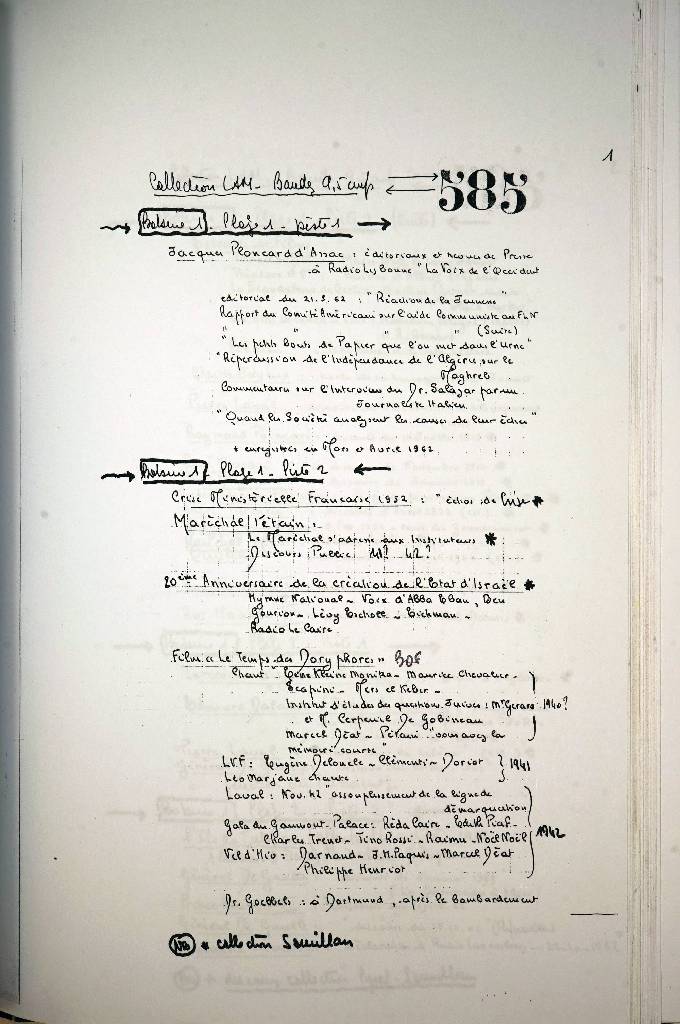 1
Collection LAM - Bandes 9,5 cm/s 585
Bobine 1 - Plage 1 - piste 1
Jacques Ploncard d'Assac : éditoriaux et revues de Presse
à Radio Lisbonne "La Voix de l'Occident
editorial du 21.3.62 : "Réaction de la Jeunesse"
Rapport du Comité Américain sur l'aide Communiste au FLN
" " " " (Suite)
"Les petits bouts de Papier que l'on met dans l'Urne"
"Répercussion de l'Indépendance de l'Algérie, sur le
Maghreb
Commentaires sur l'Interview du Dr. Salazar par un
Journaliste Italien
"Quand les Société analysent les causes de leur échec"
* enregistrées en Mars et Avril 1962
Bobine 1 - Plage 1 - Piste 2
Crise Ministérielle Française 1952 : "échos de Crise *
Maréchal Pétain :
Le Maréchal s'adresse aux Instituteurs *
Discours Public 41? 42?
20ème Anniversaire de la création de l'Etat d'Israël *
Hymne National - Voix d'Abba Eban, Ben
Gourion - Lévy Eschole - Eichman -
Radio Le Caire
Film "Le Temps des Doryphores"
Chant - Maurice Chevalier -
Scapini - Mers el Kebir -
Institut d'études des questions Juives : Mr Gerard 1940?
et M. De Gobineau
Marcel Déat - Pétain "vous avez la
mémoire courte"
LVF : Eugène Deloncle - Clémenti - Doriot 1941
Léo Marjane chante
Laval : Nov. 42 "assouplissement de la ligne de
démarcation
Gala du Gaumont-Palace : Réda Caire - Edith Piaf -
Charles Trenet - Tino Rossi - Raimu - Noël Noël 1942
Vel d'Hiv : Darnand - J.H. Paquis - Marcel Déat
Philippe Henriot
Dr. Goebbels : à Dortmund, après le bombardement
NB * collection Souillan